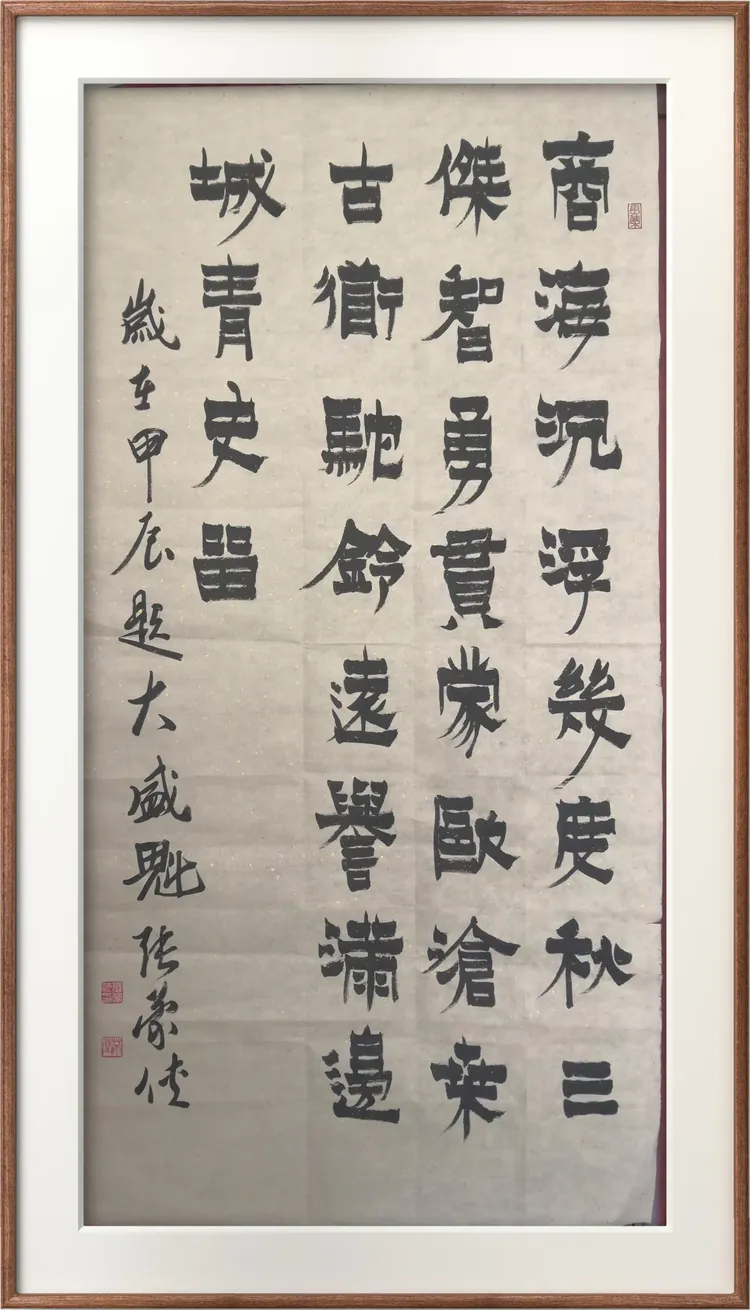 商海沉浮幾度秋三
傑智勇貫蒙歐滄桒
古衜馳鈴遠譽滿邊
城青史畱
歲在甲辰題大盛魁张蒙